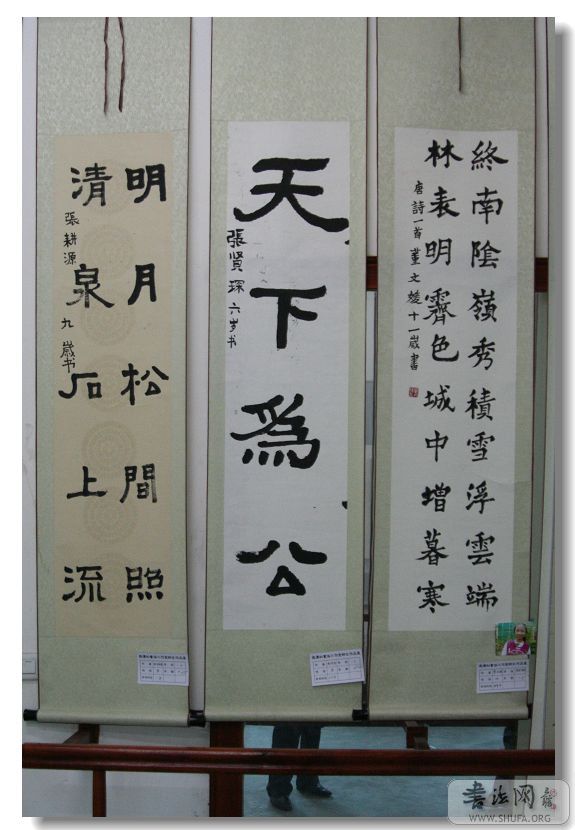 終南陰嶺秀積雪浮雲端
林表明霽色城中增暮寒
唐詩一首 董文媛十一歲書
天下為公
張賢琛 六岁书
明月松間照
清泉石上流
張耕源 九歲书
書法网
WWW.SHUFA.ORG